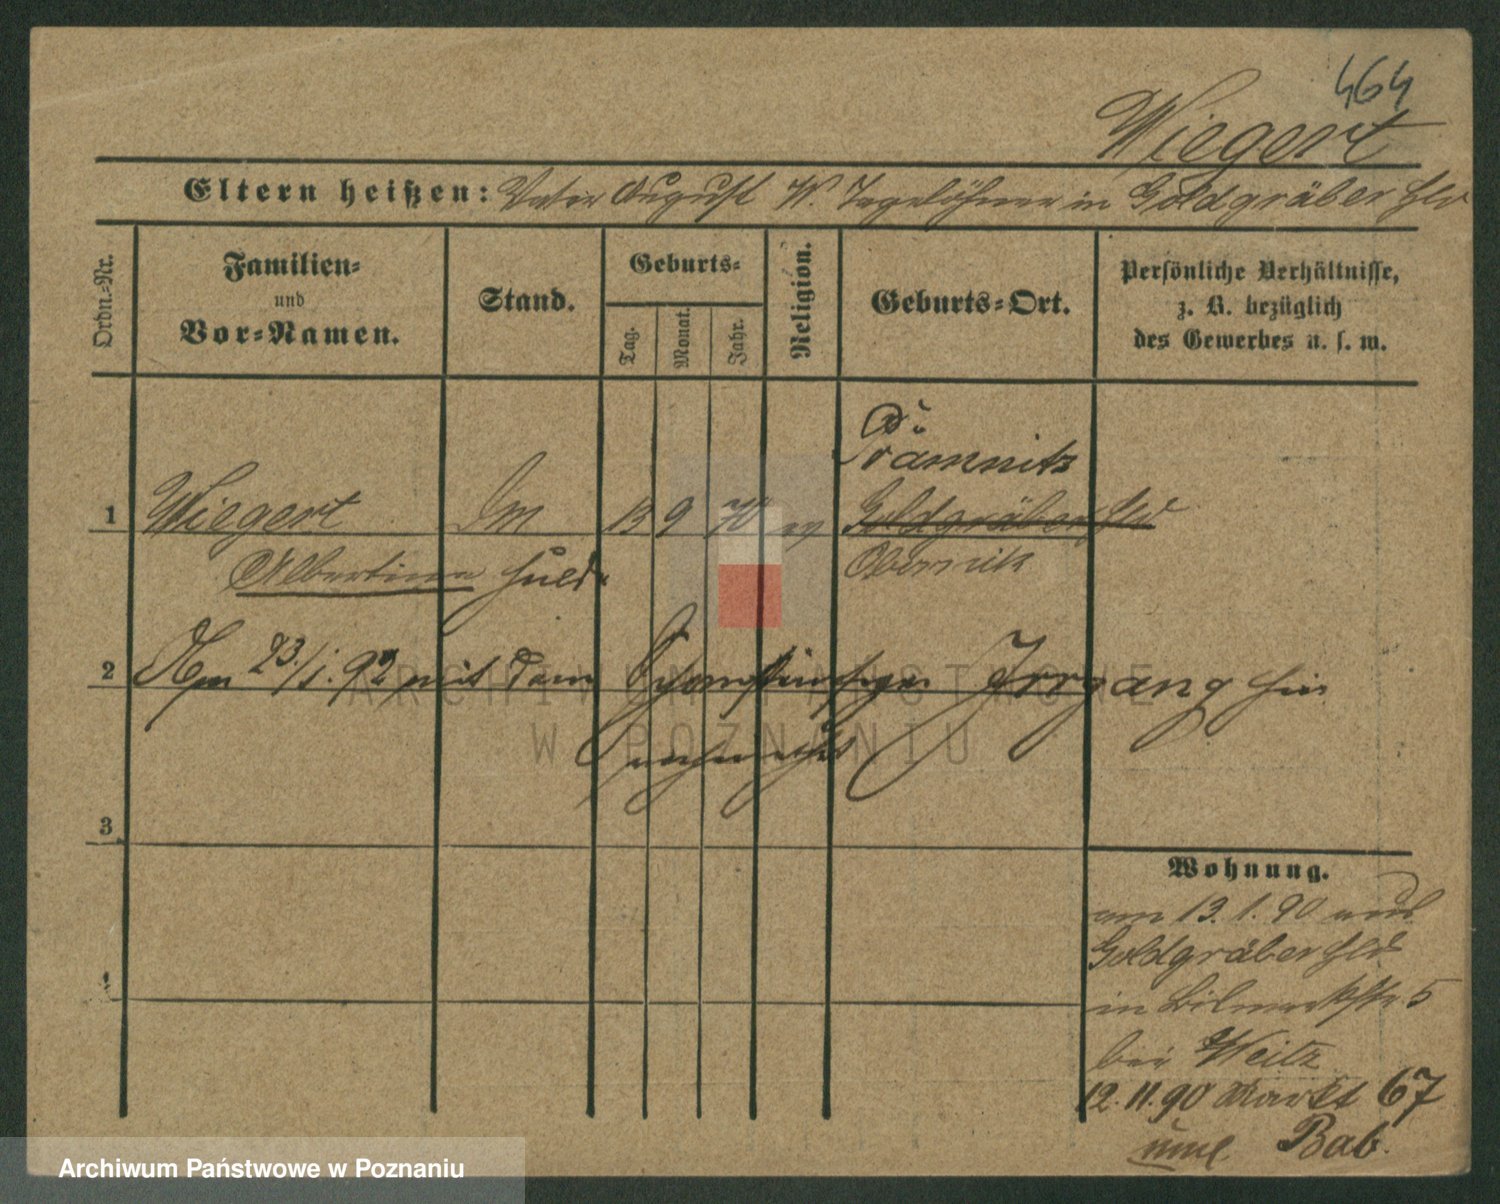 464
Wiegert
Eltern heißen: Vater August W. Tagelöhner in Goldgräber Hld
Ordn.-Nr.
Familien-
und
Vor-Namen.
Stand.
Geburts-
Tag.
Monat.
Jahr.
Religion.
Geburts-Ort.
Persönliche Verhältnisse,
z. B. bezüglich
des Gewerbes u. s. w.
Prämnitz
1 Wiegert 13 9 70 ev Goldgräber Hld
Albertine Huld. Obornik
2 Am 23/1. 92 mit dem Schornsteinfeger Jrrgang hier
3
4
Wohnung.
am 13. 1. 90 aus
Goldgräber Hld
in Bismarkstr. 5
bei Weitz
12. 11. 90 Markt 67
Bab.
ARCHIWUM PAŃSTWOWE
W POZNANIU
Archiwum Państwowe w Poznaniu